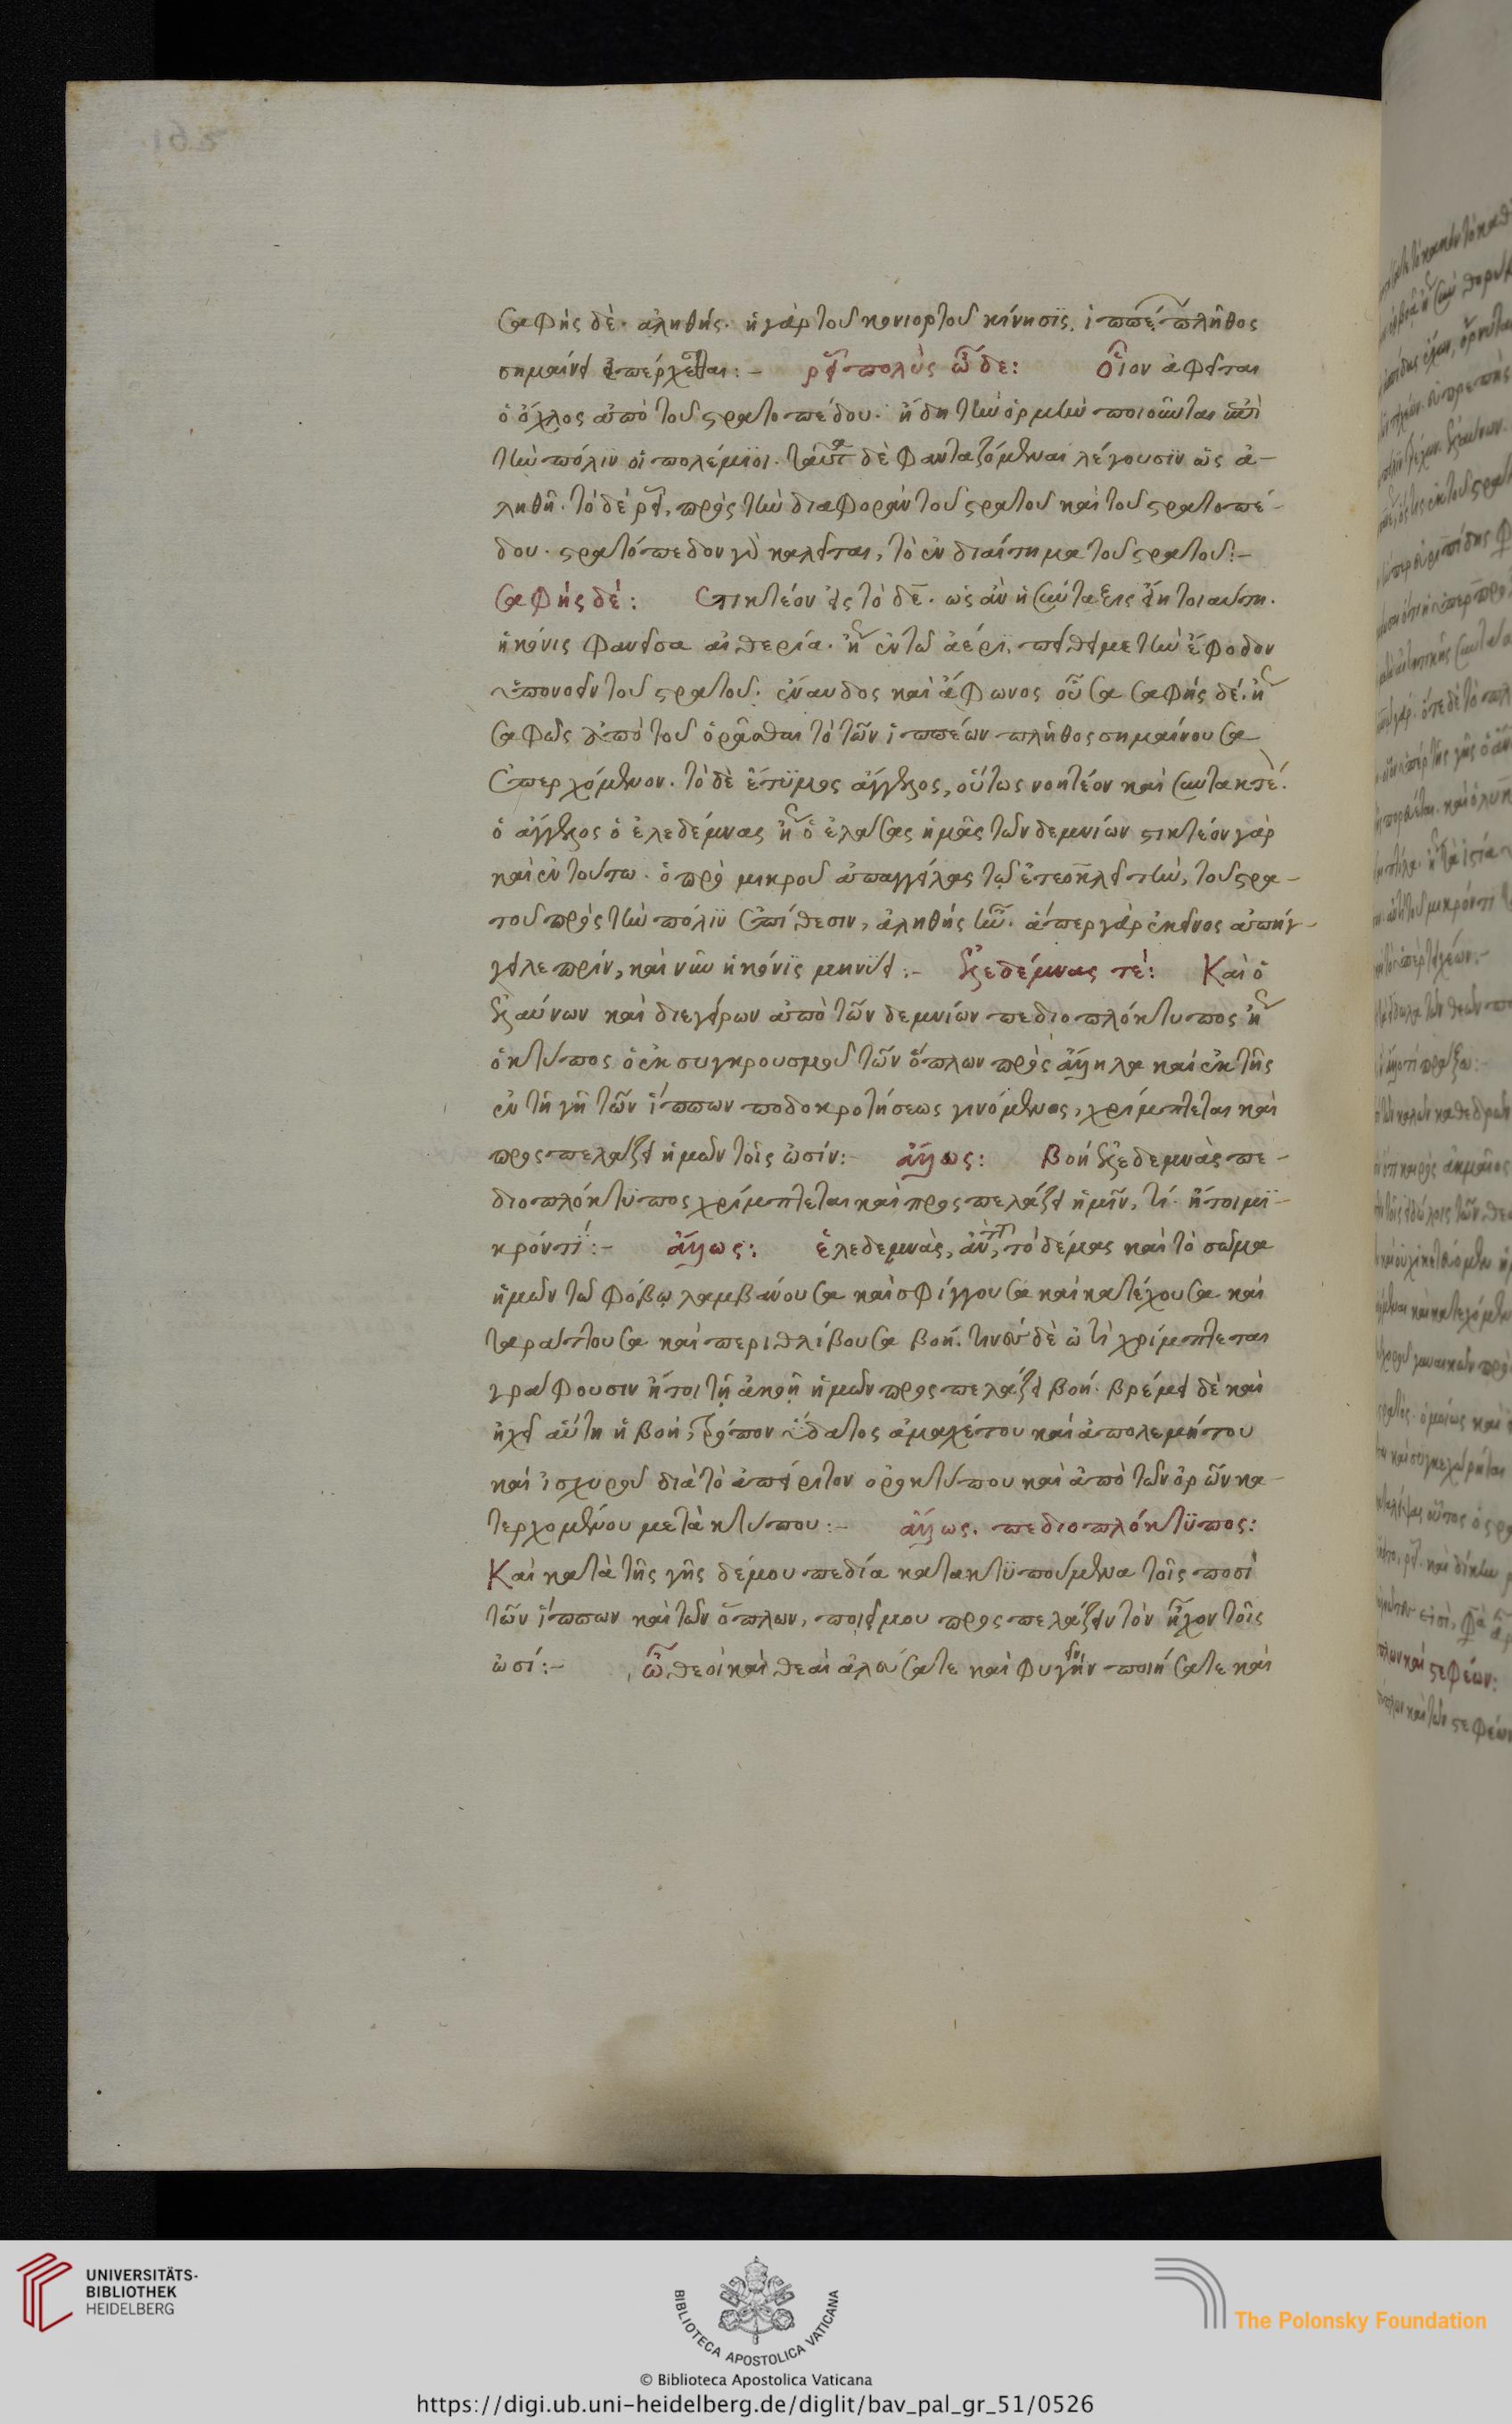 σαφὴς δὲ. ἀληθής. ἡ γὰρ τοῦ κονιορτοῦ κίνησϊς, ἱππέ πλῆθος
σημαίνει ἐπέρχεσθαι:- ῥεῖ πολὺς ὧδε: οἷον ἀφεῖται
ὁ ὄχλος ἀπὸ τοῦ στρατοπέδου. ἤδη τὴν ὁρμὴν ποιοῦνται ἐπὶ
τὴν πόλϊν οἱ πολέμϊοι. ταῦτα δὲ φανταζόμεναι λέγουσϊν ὡς ἀ-
ληθῆ. τὸ δὲ ῥεῖ, πρὸς τὴν διαφορὰν τοῦ στρατοῦ καὶ τοῦ στρατοπέ-
δου. στρατόπεδον γὰρ καλεῖται, τὸ ἐνδιαίτημα τοῦ στρατοῦ:-
σαφὴς δέ: στικτέον εἰς τὸ δέ. ὡς ἂν ἡ σύνταξις εἴη τοιαύτη.
ἡ κόνις φανεῖσα αἰθερία. ἢ ἐν τῶ ἀέρι, πείθει με τὴν ἔφοδον
ὑπονοεῖν τοῦ στρατοῦ. ἄναυδος καὶ ἄφωνος οὖσα σαφὴς δέ. ἢ
σαφῶς ἀπὸ τοῦ ὁρᾶσθαι τὸ τῶν ἱππέων πλῆθος σημαίνουσα
ἐπερχόμενον. τὸ δὲ ἔτϋμος ἄγγελος, οὕτως νοητέον καὶ συντακτέ.
ὁ ἄγγελος ὁ ἑλεδέμνας ἢ ὁ ἐλάσας ἡμᾶς τῶν δεμνίων στικτέον γὰρ
καὶ ἐν τούτω. ὁ πρὸ μικροῦ ἀπαγγείλας τῷ ἐτεοκλεῖ τὴν, τοῦ στρα-
τοῦ πρὸς τὴν πόλϊν ἐπίθεσιν, ἀληθὴς ἦν. ἅπερ γὰρ ἐκεῖνος ἀπήγ-
γειλε πρίν, καὶ νῦν ἡ κόνϊς μηνύει:- ἑλεδέμνας τέ: Καὶ ὁ
ἐλαύνων καὶ διεγείρων ἀπὸ τῶν δεμνίων πεδιοπλόκτυπος ἢ
ὁ κτύπος ὁ ἐκ συγκρουσμοῦ τῶν ὅπλων πρὸς ἄλληλα καὶ ἐκ τῆς
ἐν τῇ γῇ τῶν ἵππων ποδοκροτήσεως γινόμενος, χρίμπτεται καὶ
προσπελάζει ἡμῶν τοῖς ὠσίν:- ἄλλως: βοὴ ἑλεδεμνὰς πε-
διοπλόκτϋπος χρίμπτεται καὶ προσπελάζει ἡμῖν, τί. ἤτοι μϊ-
κρόν τϊ:- ἄλλως: ἑλεδεμνὰς, ἀντὶ, τὸ δέμας καὶ τὸ σῶμα
ἡμῶν τῶ φόβῳ λαμβάνουσα καὶ σφίγγουσα καὶ κατέχουσα καὶ
ταράττουσα καὶ περιθλίβουσα βοή. τινὲς δὲ ὠτὶ χρίμπτεται
γράφουσιν ἤτοι τῇ ἀκοῇ ἡμῶν προσπελάζει βοή. βρέμει δὲ καὶ
ἠχεῖ αὕτη ἡ βοή, τρόπον ὕδατος ἀμαχέτου καὶ ἀπολεμήτου
καὶ ἰσχυροῦ διὰ τὸ ἀπείριτον ὀροκτύπου καὶ ἀπὸ τῶν ὀρῶν κα-
τερχομένου μετὰ κτύπου:- ἄλλως. πεδιοπλόκτϋπος:
Καὶ κατὰ τῆς γῆς δέμου πεδία κατακτϋπούμενα τοῖς ποσὶ
τῶν ἵππων καὶ τῶν ὅπλων, ποιεῖ μου προσπελάζειν τὸν ἦχον τοῖς
ὠσί:- ὦ θεοὶ καὶ θεαὶ ἀλεύσατε καὶ φυγεῖν ποιήσατε καὶ
UNIVERSITÄTS-
BIBLIOTHEK
HEIDELBERG
BIBLIOTECA APOSTOLICA VATICANA
The Polonsky Foundation
© Biblioteca Apostolica Vaticana
https://digi.ub.uni-heidelberg.de/diglit/bav_pal_gr_51/0526